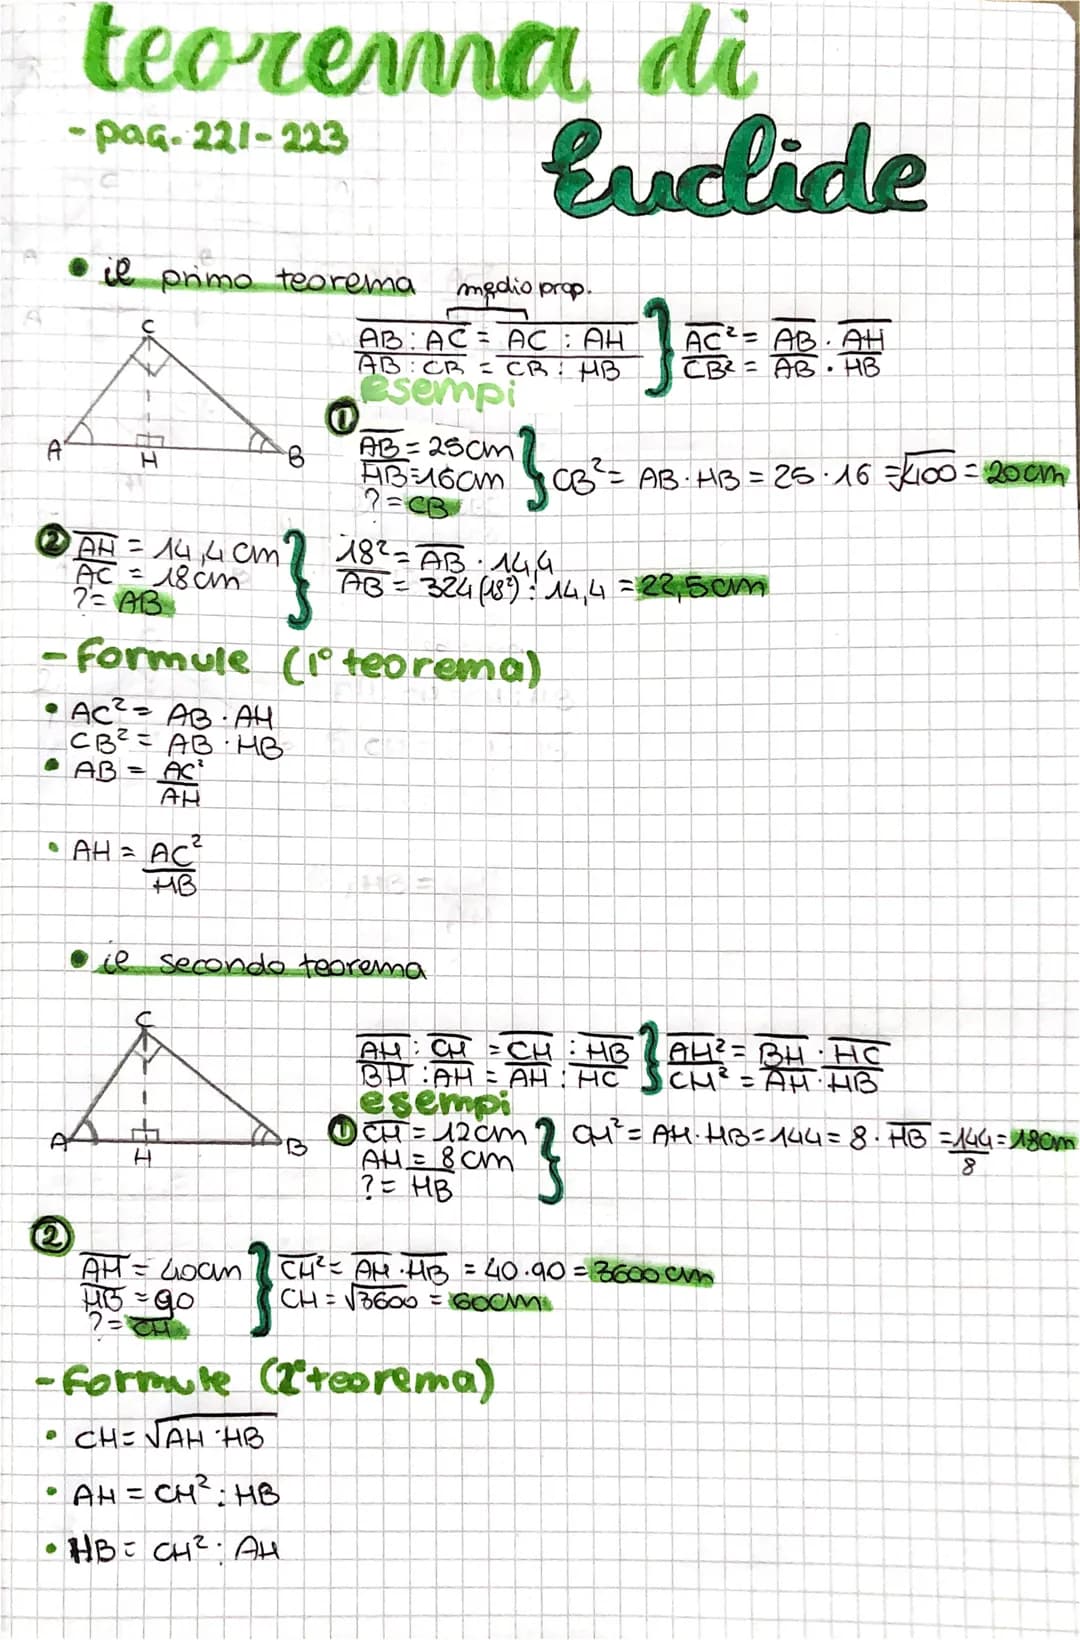 teorema di
Euclide
- pag. 221-223
• il primo teorema
medio prop.
AB : AC = AC : AH } AC² = AB · AH
AB : CB = CB : HB CB² = AB · HB
C
A
H
B
esempi
① AB = 25cm
HB = 16cm } CB² = AB · HB = 25 · 16 = √400 = 20cm
? = CB
② AH = 14,4 cm } 18² = AB · 14,4
AC = 18cm AB = 324 (18²) : 14,4 = 22,5cm
? = AB
- formule (1° teorema)
• AC² = AB · AH
CB² = AB · HB
• AB = AC²
AH
• AH = AC²
HB
• il secondo teorema
C
A
H
B
AH : CH = CH : HB } AH² = BH · HC
BH : AH = AH : HC CH² = AH · HB
esempi
① CH = 12cm } CH² = AH · HB = 144 = 8 · HB = 144 = 18cm
8
AH = 8cm
? = HB
②
AH = 40cm } CH² = AH · HB = 40 · 90 = 3600 cm
HB = 90 CH = √3600 = 60cm
? = CH
- formule (2° teorema)
• CH = √AH · HB
• AH = CH² : HB
• HB = CH² : AH